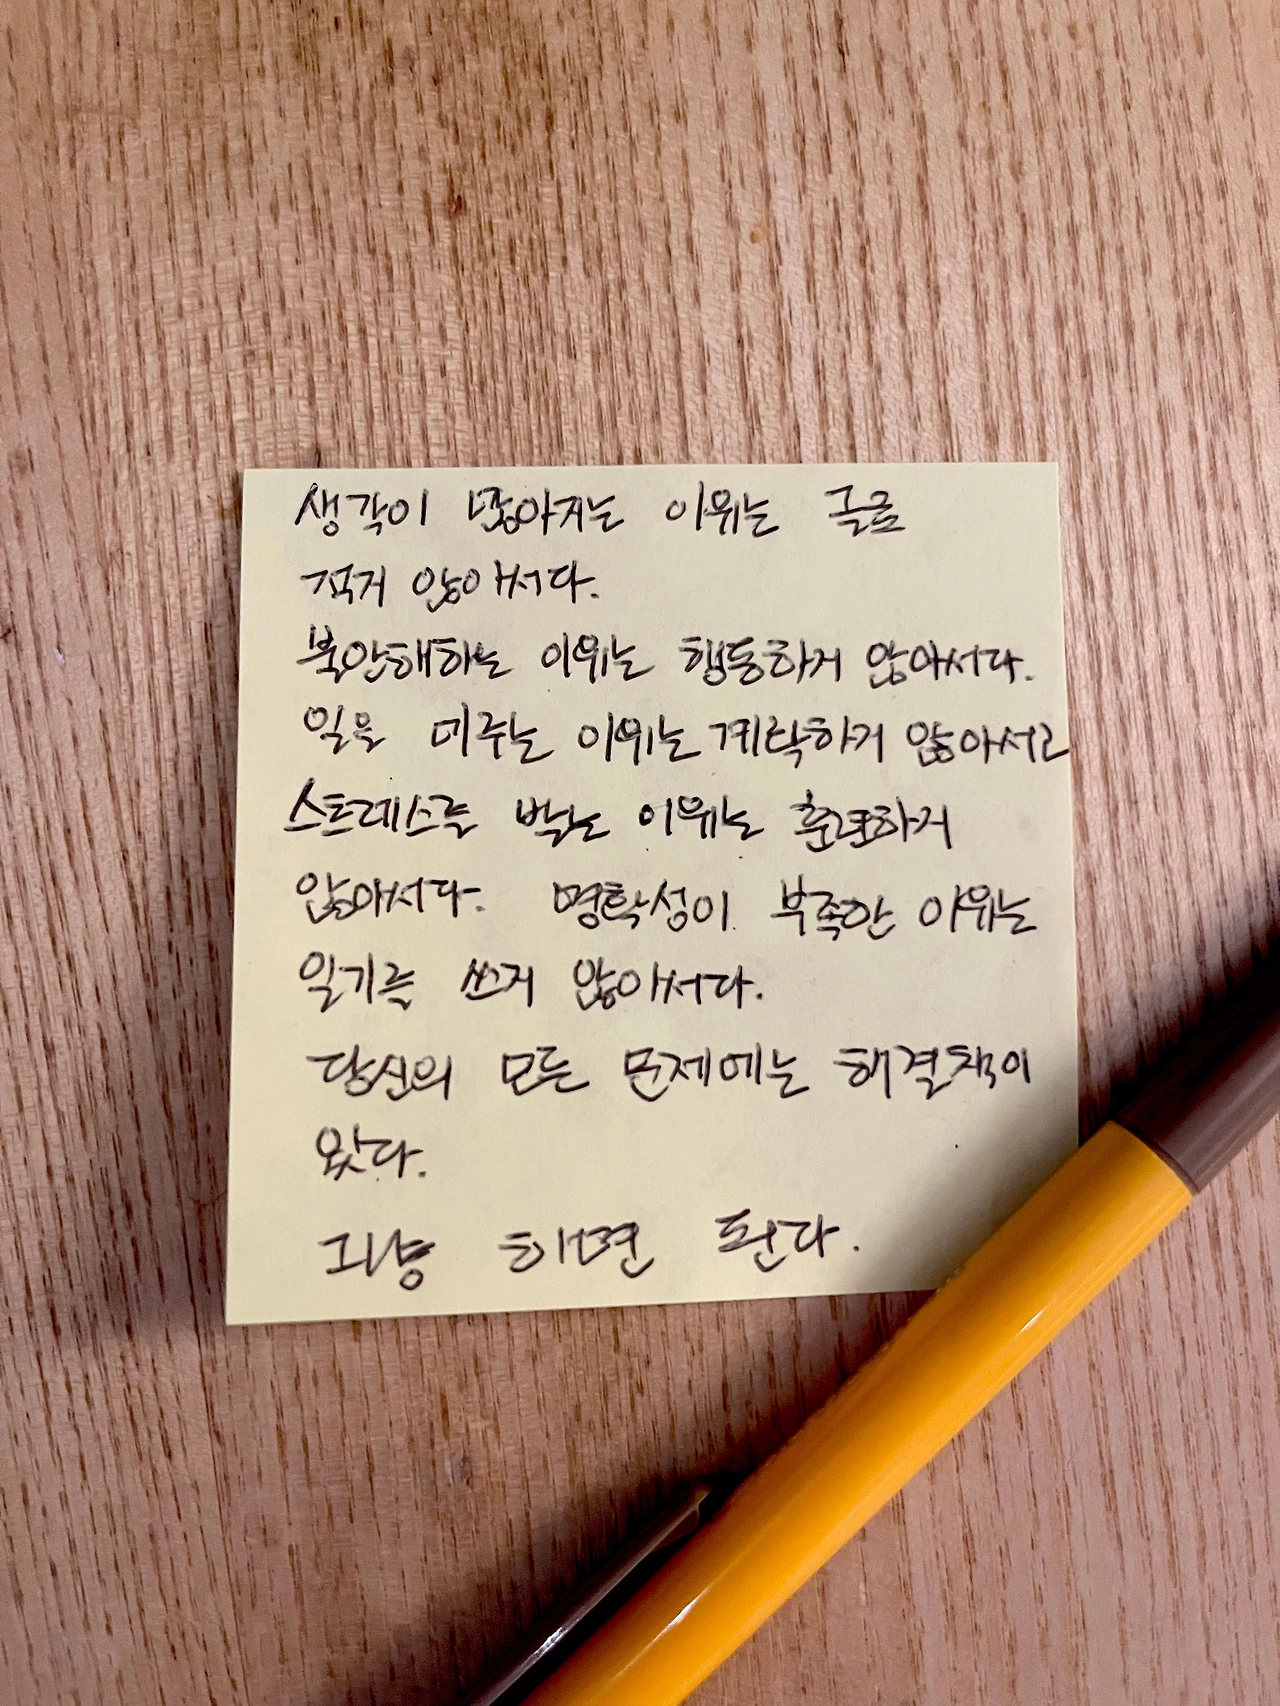 생각이 많아지는 이유는 글로
적지 않아서다.
불안해하는 이유는 행동하지 않아서다.
일을 미루는 이유는 계획하지 않아서고
스트레스를 받는 이유는 훈련하지
않아서다. 명확성이 부족한 이유는
일기를 쓰지 않아서다.
당신의 모든 문제에는 해결책이
있다.
그냥 하면 된다.